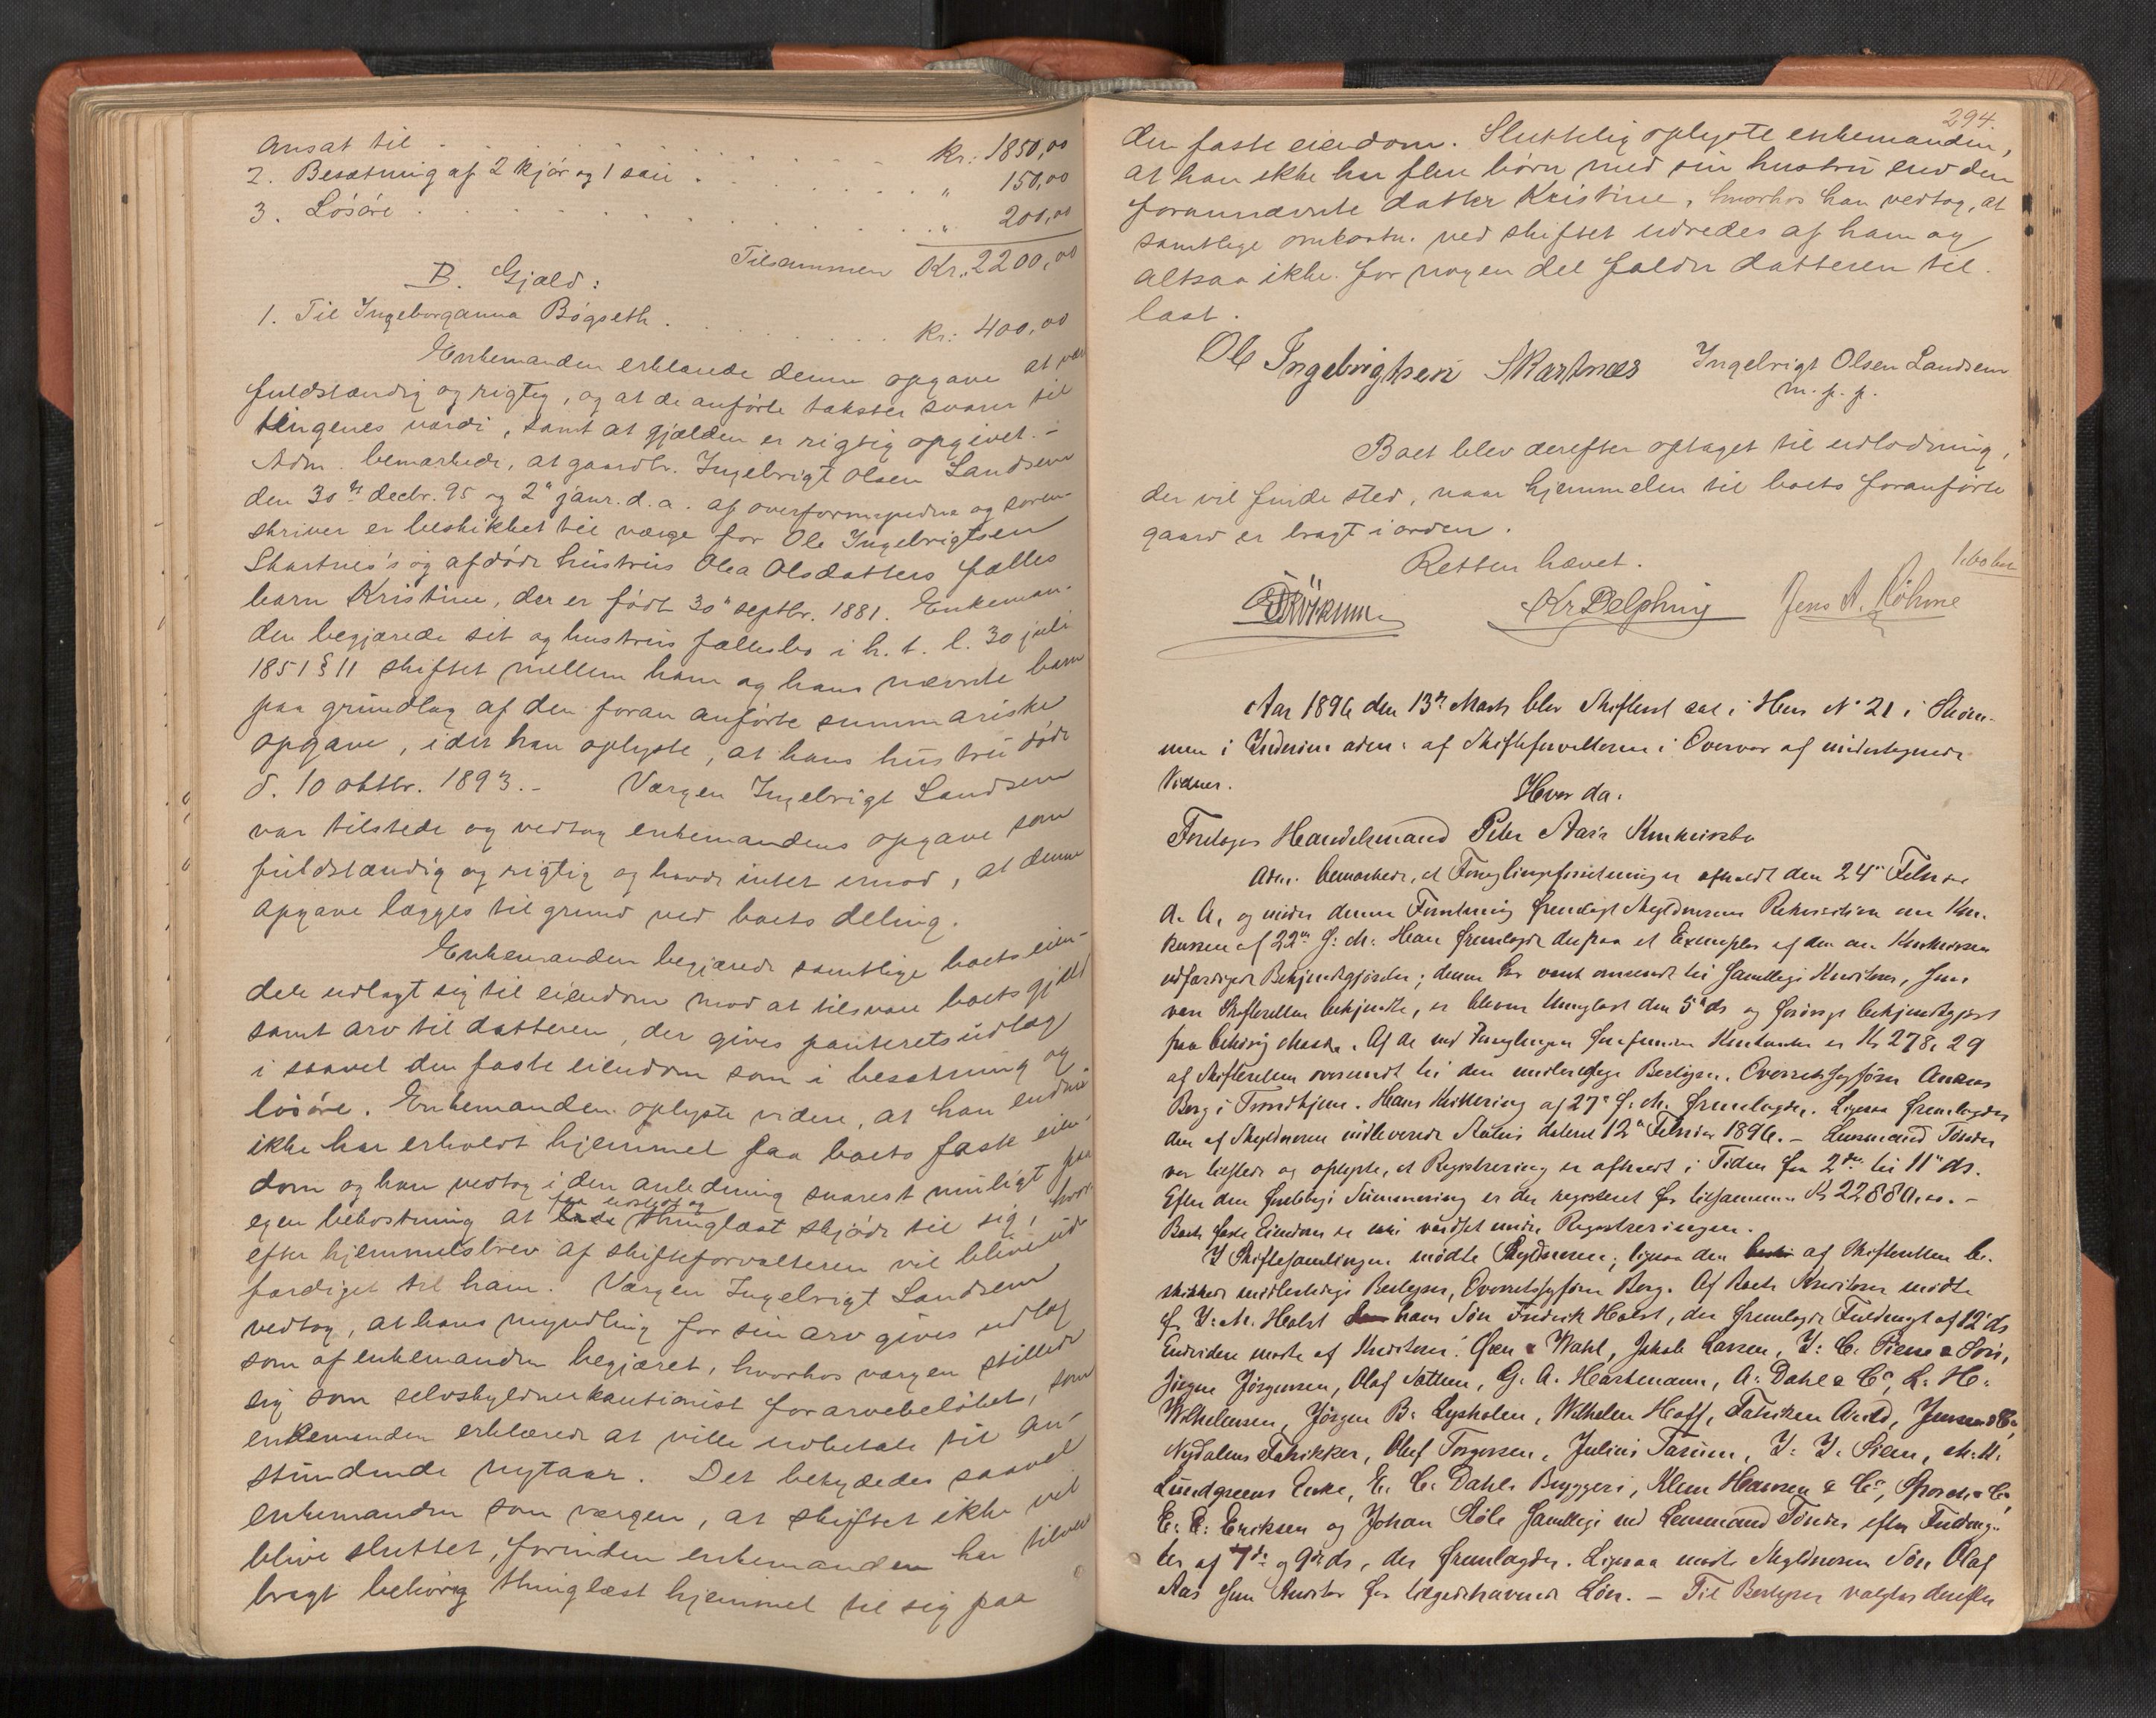 ansat til . . . . . . kr: 1850,00
2. Besætning af 2 kjör og 1 sau . . . . " 150,00
3. Lösöre . . . . . . " 200,00
Tilsammen Kr. 2200,00
B. Gjæld:
1. Til Ingeborganna Bögseth . . . . kr: 400,00
Enkemanden erklærede denne opgave at være
fuldstændig og rigtig, og at de anförte takster svarer til
tingenes værdi, samt at gjælden er rigtig opgivet. -
Adm. bemærkede, at gaardbr. Ingebrigt Olsen Landsem
den 30te decbr. 95 og 2" janr. d. a. af overformynderi og soren-
skriver er beskikket til værge for Ole Ingebrigtsen
Skartnes's og afdöde hustrus Olea Olsdatters fælles
barn Kristine, der er födt 30" septbr. 1881. Enkeman-
den begjærede sit og hustrus fællesbo i h. t. l. 30 juli
1851 § 11 skiftet mellem ham og hans nævnte barn
paa grundlag af den foran anförte summariske
opgave, idet han oplyste, at hans hustru döde
d. 10 oktbr. 1893. - Værgen Ingebrigt Landsem
var tilstede og vedtog enkemandens opgave som
fuldstændig og rigtig og havde intet imod, at denne
opgave lægges til grund ved boets deling.
Enkemanden begjærede samtlige boets eien-
dele udlagt sig til eiendom mod at tilsvare boets gjæld
samt arv til datteren, der gives panteretsudlæg
i saavel den faste eiendom som i besætning og
lösöre. Enkemanden oplyste videre, at han endnu
ikke har erholdt hjemmel paa boets faste eien-
dom og han vedtog i den anledning snarest muligt paa
egen bekostning at faa udstedt og thinglæst skjöde til sig, hvor-
efter hjemmelsbrev af skifteforvalteren vil blive ud-
færdiget til ham. Værgen Ingebrigt Landsem
vedtog, at hans myndling for sin arv gives udlæg
som af enkemanden begjæret, hvorhos værgen stillede
sig som selvskyldnerkautionist for arvebelöbet, som
enkemanden erklærede at ville udbetale til an-
stundende nytaar. Det betydedes saavel
enkemanden som værgen, at skiftet ikke vil
blive sluttet, forinden enkemanden har tilveie-
bragt behörig thinglæst hjemmel til sig paa
294.
den faste eiendom. Sluttelig oplyste enkemanden,
at han ikke har flere börn med sin hustru end den
forannævnte datter Kristine, hvorhos han vedtog, at
samtlige omkostn. ved skiftet udredes af ham og
altsaa ikke for nogen del falder datteren til
last.
Ole Ingebrigtsen Skartnæs Ingebrigt Olsen Landsem
m. p. p.
Boet blev derefter optaget til udlodning,
der vil finde sted, naar hjemmelen til boets foranförte
gaard er bragt i orden.
Retten hævet.
Kr Delphin Jens A. Röhme
Aar 1896 den 13de Marts blev Skifteret sat i Hus No 21 i Stören-
i Inderöen adm: af Skifteforvalteren i Overvær af undertegnede
Vidner.
Hvor da:
Foretages Handelsmand Peter Aas's Konkursbo
Adm. bemærkede, at Foreglingsforretning er afholdt den 24de Februar
d. A., og under denne Forretning fremlagt Skyldnerens Rekvisition om Kon-
kursen af 22de f: M: Han fremlagde derpaa et Exemplar af den om Konkursen
udfærdigede Bekjendtgjörelse; denne har været omsendt til samtlige Kreditorer, som
vare Skifteretten bekjendte, er bleven thinglæst den 5te ds og forövrigt bekjendtgjort
paa behörig Maade. Af de ved Foreglingen forefundne Kontanter er Kr 278,29
af Skifteretten oversendt til den midlertidige Bestyrer, Overretssagförer Anders
Berg i Trondhjem. Hans Kvittering af 27de f: M: fremlagdes. Ligesaa fremlagdes
den af Skyldneren indleverede Status dateret 12te Februar 1896. - Lensmand Tönder
var tilstede og oplyste, at Registrering er afholdt i Tiden fra 2den til 11te ds.
Efter den forelöbige Summering er der registreret for tilsammen Kr 22880,00. -
Boets faste Eiendom er ikke værdsat under Registreringen.
I Skiftesamlingen mödte Skyldneren; ligesaa den af Skifteretten be-
skikkede midlertidige Bestyrer, Overretssagförer Berg. Af Boets Kreditorer mödte
for I: M. Holst hans Sön Fredrik Holst, der fremlagde Fuldmagt af 12te ds
Endvidere mödte af Kreditorer: Qven & Wahl, Jakob Larsen, I: C. Piene & Sön,
Jörgen Jörgensen, Olaf Sættem, G. A. Hartmann, A: Dahl & Co, L. H:
Wilhelmsen, Jörgen B: Lysholm, Wilhelm Hoff, Fabriken Arild, Jensen & Co,
Nydalens Fabrikker, Oluf Torgersen, Julius Farüen, I: I: Siem, M. H.
Lundgreens Enke, E. C. Dahls Bryggeri, Klem Hansen & Co,
E: E: Eriksen og Johan Stöle samtlige ved Lensmand Tönder efter Fuldmag-
ter af 7de og 9de ds, der fremlagdes. Ligesaa mödte Skyldnerens Sön Olaf
Aas som Kreditor for tilgodehavende Lön. - Til Bestyrer valgtes derefter